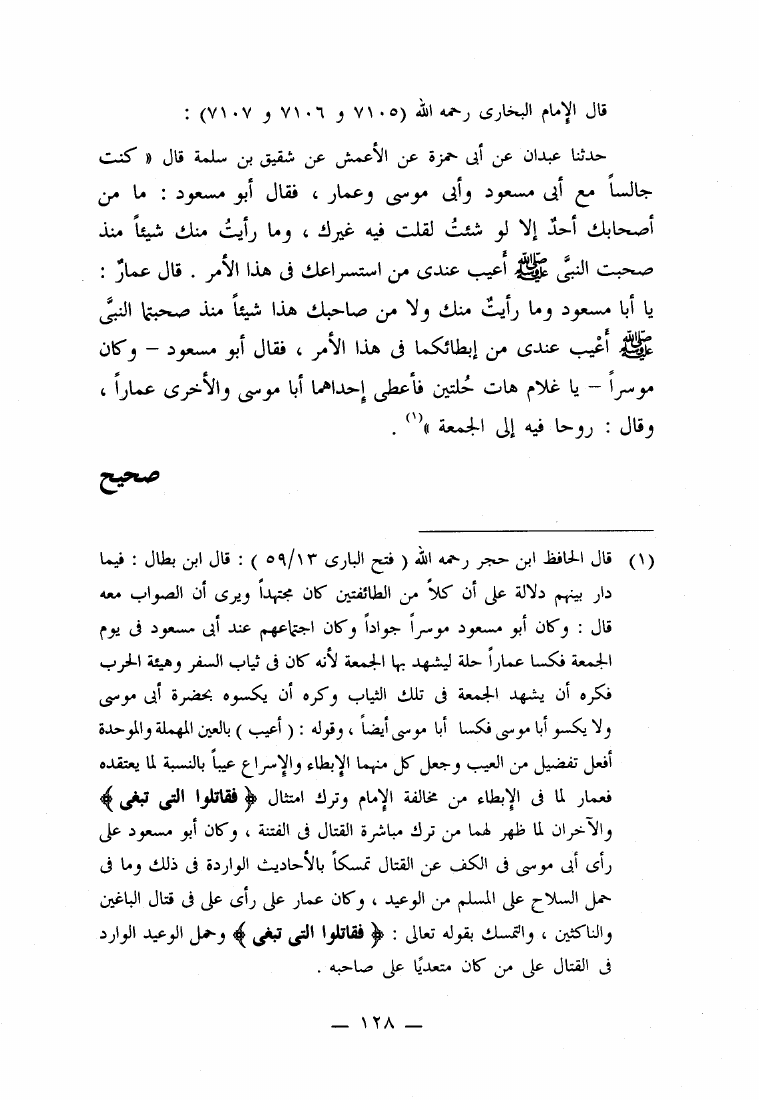 قال الإمام البخارى رحمه الله (٧١٠٥ و ٧١٠٦ و ٧١٠٧) :
حدثنا عبدان عن أبى حمزة عن الأعمش عن شقيق بن سلمة قال « كنت
جالساً مع أبى مسعود وأبى موسى وعمار ، فقال أبو مسعود : ما من
أصحابك أحدٌ إلا لو شئتُ لقلت فيه غيرك ، وما رأيتُ منك شيئاً منذ
صحبت النبىَّ ﷺ أَعيب عندى من استسراعك فى هذا الأمر . قال عمارٌ :
يا أبا مسعود وما رأيتٌ منك ولا من صاحبك هذا شيئاً منذ صحبتما النبىَّ
ﷺ أَعْيب عندى من إبطائكما فى هذا الأمر ، فقال أبو مسعود – وكان
موسراً – يا غلام هات حُلتين فأعطى إحداهما أبا موسى والأخرى عماراً ،
وقال : روحا فيه إلى الجمعة »(١) .
صحيح
(١) قال الحافظ ابن حجر رحمه الله ( فتح البارى ٥٩/١٣ ) : قال ابن بطال : فيما
دار بينهم دلالة على أن كلاً من الطائفتين كان مجتهداً ويرى أن الصواب معه
قال : وكان أبو مسعود موسراً جواداً وكان اجتماعهم عند أبى مسعود فى يوم
الجمعة فكسا عماراً حلة ليشهد بها الجمعة لأنه كان فى ثياب السفر وهيئة الحرب
فكره أن يشهد الجمعة فى تلك الثياب وكره أن يكسوه بحضرة أبى موسى
ولا يكسو أبا موسى فكسا أبا موسى أيضاً ، وقوله : ( أعيب ) بالعين المهملة والموحدة
أفعل تفضيل من العيب وجعل كل منهما الإبطاء والإسراع عيباً بالنسبة لما يعتقده
فعمار لما فى الإبطاء من مخالفة الإمام وترك امتثال ﴿ فقاتلوا التى تبغى ﴾
والآخران لما ظهر لهما من ترك مباشرة القتال فى الفتنة ، وكان أبو مسعود على
رأى أبى موسى فى الكف عن القتال تمسكاً بالأحاديث الواردة فى ذلك وما فى
حمل السلاح على المسلم من الوعيد ، وكان عمار على رأى على فى قتال الباغين
والناكثين ، والتمسك بقوله تعالى : ﴿ فقاتلوا التى تبغى ﴾ وحمل الوعيد الوارد
فى القتال على من كان متعديًا على صاحبه .
— ١٢٨ —